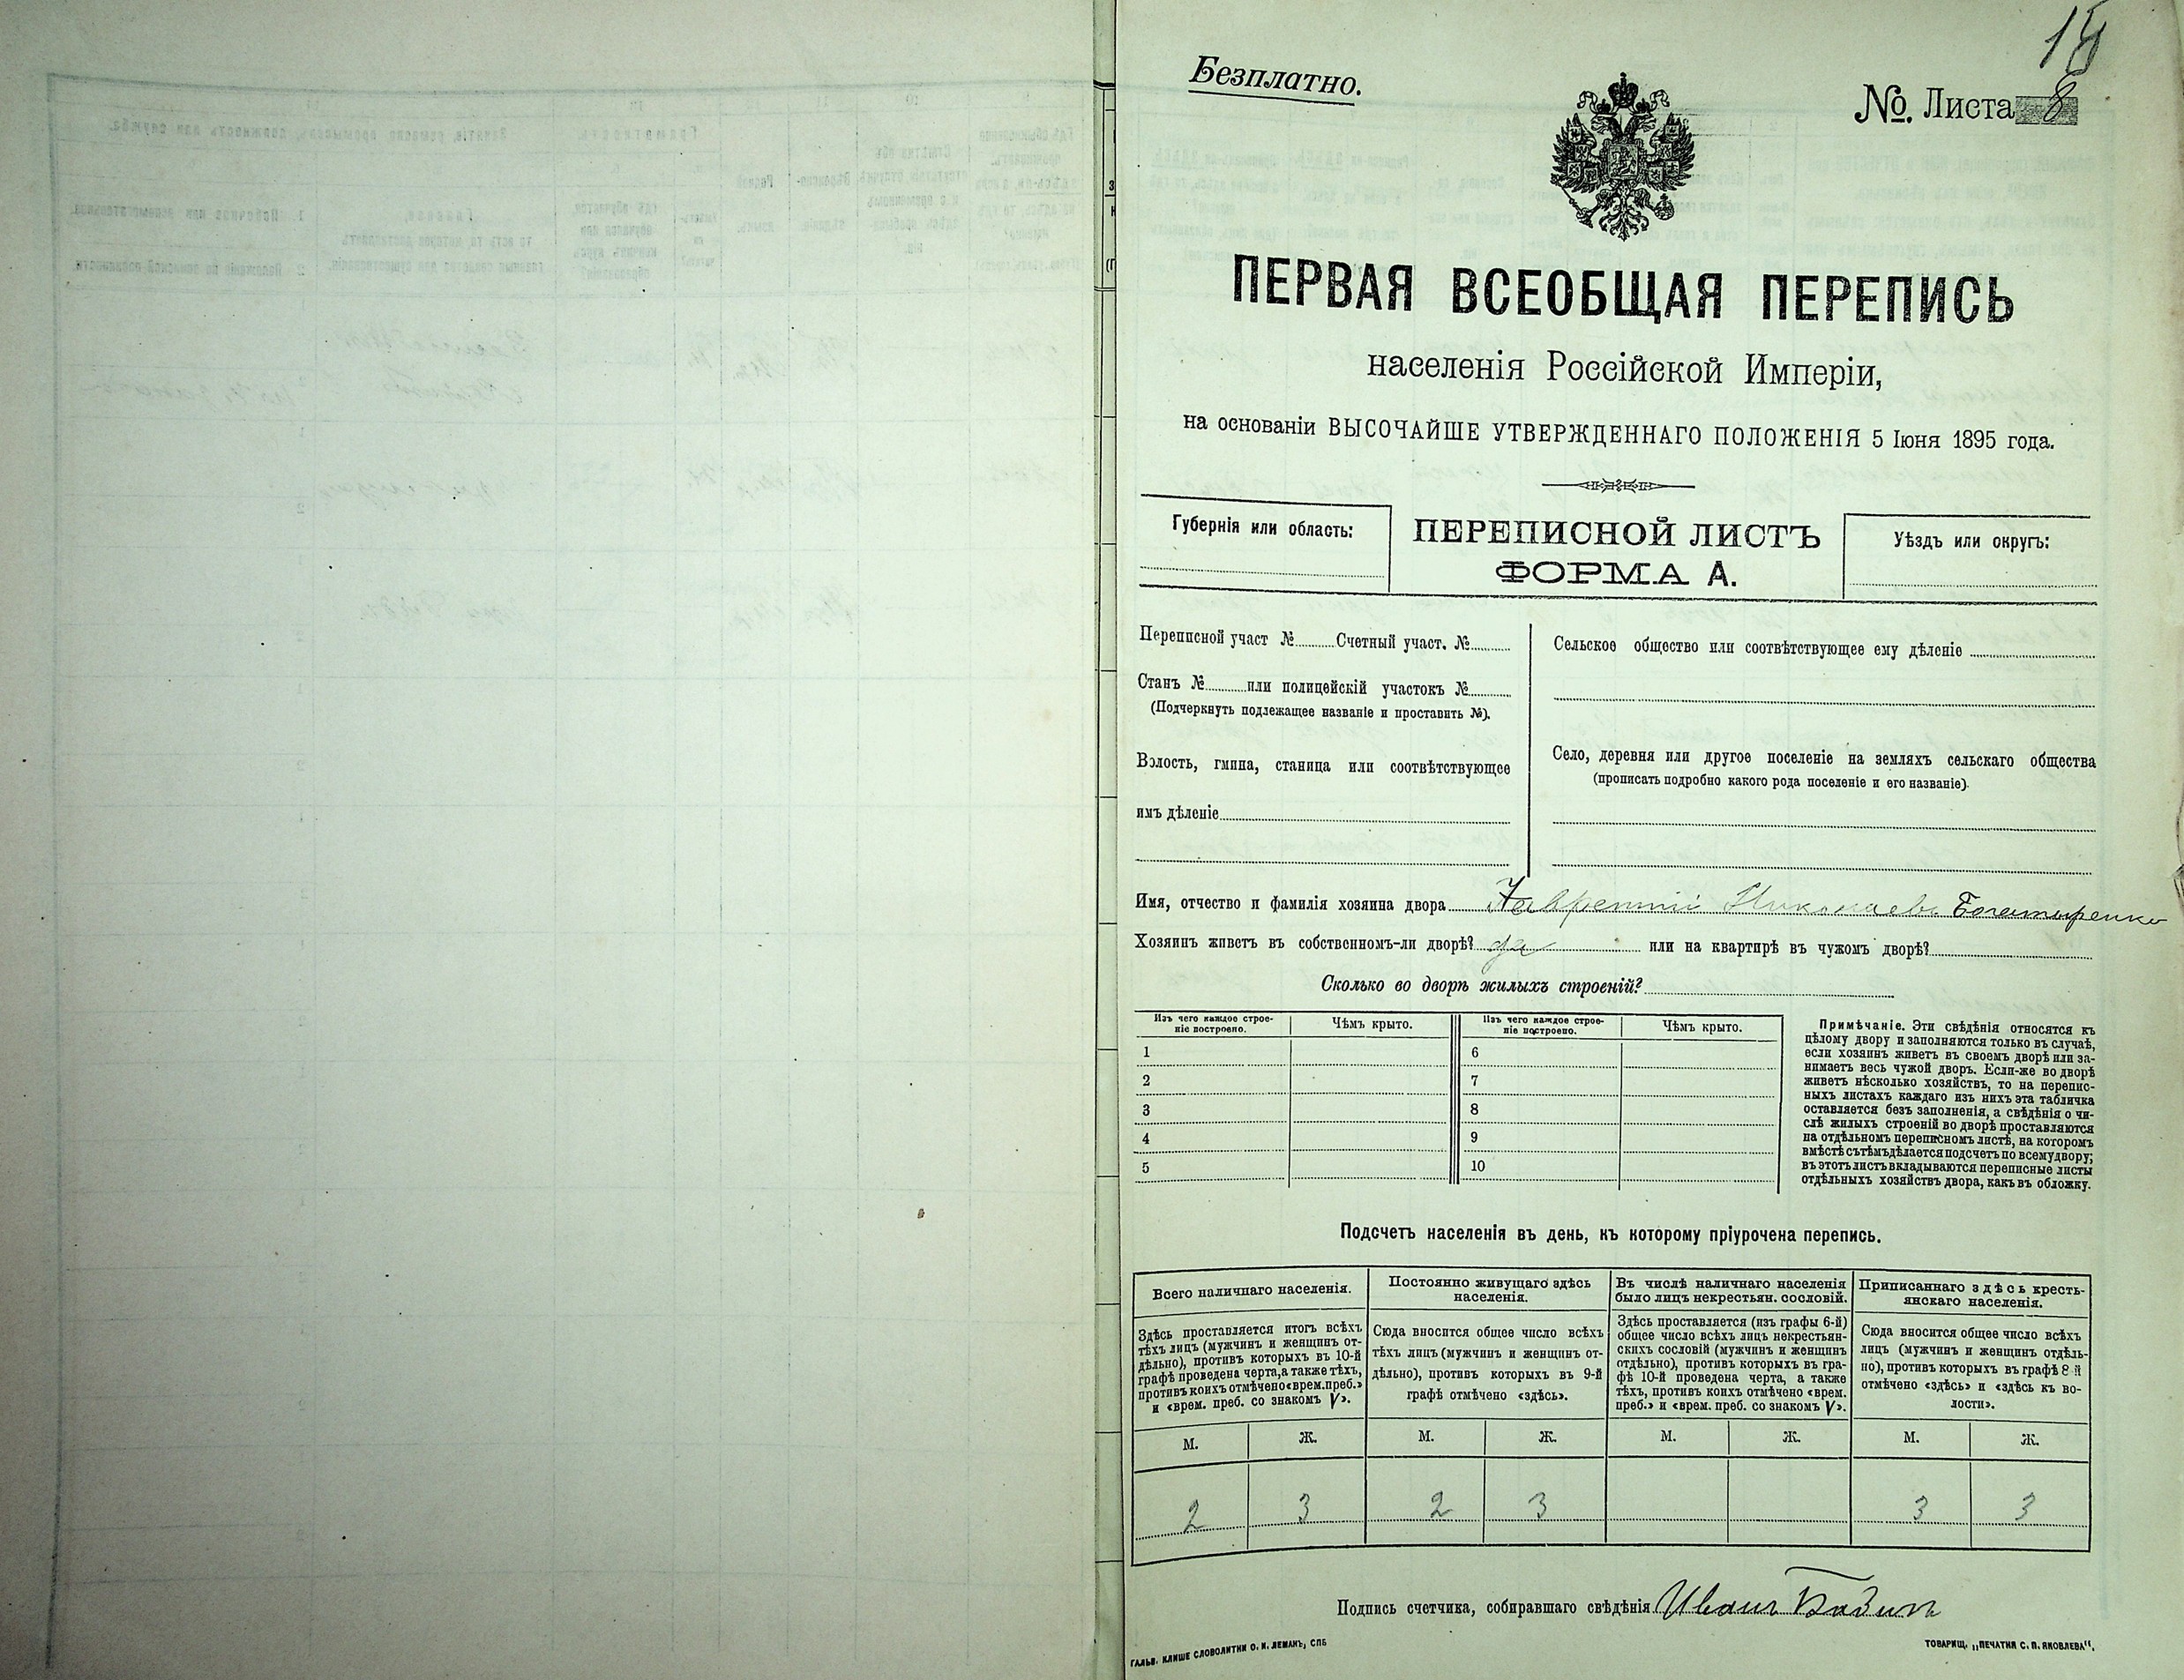 15
Безплатно.
№. Листа 8
ПЕРВАЯ ВСЕОБЩАЯ ПЕРЕПИСЬ
населенія Россійской Имперіи,
на основаніи ВЫСОЧАЙШЕ УТВЕРЖДЕННАГО ПОЛОЖЕНІЯ 5 Іюня 1895 года.
Губернія или область:
ПЕРЕПИСНОЙ ЛИСТЪ
ФОРМА А.
Уѣздъ или округъ:
Переписной участ № Счетный участ. №
Станъ № или полицейскій участокъ №
(Подчеркнуть подлежащее названіе и проставить №).
Волость, гмина, станица или соотвѣтствующее
имъ дѣленіе
Сельское общество или соотвѣтствующее ему дѣленіе
Село, деревня или другое поселеніе на земляхъ сельскаго общества
(прописать подробно какого рода поселеніе и его названіе).
Имя, отчество и фамилія хозяина двора Лаврентій Николаевъ Богатыренко
Хозяинъ живетъ въ собственномъ-ли дворѣ? да или на квартирѣ въ чужомъ дворѣ?
Сколько во дворѣ жилыхъ строеній?
Изъ чего каждое строе-
ніе построено.
Чѣмъ крыто.
Изъ чего каждое строе-
ніе построено.
Чѣмъ крыто.
1 6
2 7
3 8
4 9
5 10
Примѣчаніе. Эти свѣдѣнія относятся къ
цѣлому двору и заполняются только въ случаѣ,
если хозяинъ живетъ въ своемъ дворѣ или за-
нимаетъ весь чужой дворъ. Если-же во дворѣ
живетъ нѣсколько хозяйствъ, то на перепис-
ныхъ листахъ каждаго изъ нихъ эта табличка
оставляется безъ заполненія, а свѣдѣнія о чи-
слѣ жилыхъ строеній во дворѣ проставляются
на отдѣльномъ переписномъ листѣ, на которомъ
вмѣстѣ съ тѣмъ дѣлается подсчетъ по всему двору;
въ этотъ листъ вкладываются переписные листы
отдѣльныхъ хозяйствъ двора, какъ въ обложку.
Подсчетъ населенія въ день, къ которому пріурочена перепись.
Всего наличнаго населенія.
Здѣсь проставляется итогъ всѣхъ
тѣхъ лицъ (мужчинъ и женщинъ от-
дѣльно), противъ которыхъ въ 10-й
графѣ проведена черта, а также тѣхъ,
противъ коихъ отмѣчено «врем. преб.»
и «врем. преб. со знакомъ V».
Постоянно живущаго здѣсь
населенія.
Сюда вносится общее число всѣхъ
тѣхъ лицъ (мужчинъ и женщинъ от-
дѣльно), противъ которыхъ въ 9-й
графѣ отмѣчено «здѣсь».
Въ числѣ наличнаго населенія
было лицъ некрестьян. сословій.
Здѣсь проставляется (изъ графы 6-й)
общее число всѣхъ лицъ некрестьян-
скихъ сословій (мужчинъ и женщинъ
отдѣльно), противъ которыхъ въ гра-
фѣ 10-й проведена черта, а также
тѣхъ, противъ коихъ отмѣчено «врем.
преб.» и «врем. преб. со знакомъ V».
Приписаннаго здѣсь кресть-
янскаго населенія.
Сюда вносится общее число всѣхъ
лицъ (мужчинъ и женщинъ отдѣль-
но), противъ которыхъ въ графѣ 8-й
отмѣчено «здѣсь» и «здѣсь къ во-
лости».
М. Ж. М. Ж. М. Ж. М. Ж.
2 3 2 3 3 3
Подпись счетчика, собиравшаго свѣдѣнія Иванъ
ГАЛЬВ. КЛИШЕ СЛОВОЛИТНИ О. И. ЛЕМАНЪ, СПБ
ТОВАРИЩ. „ПЕЧАТНЯ С. П. ЯКОВЛЕВА“.